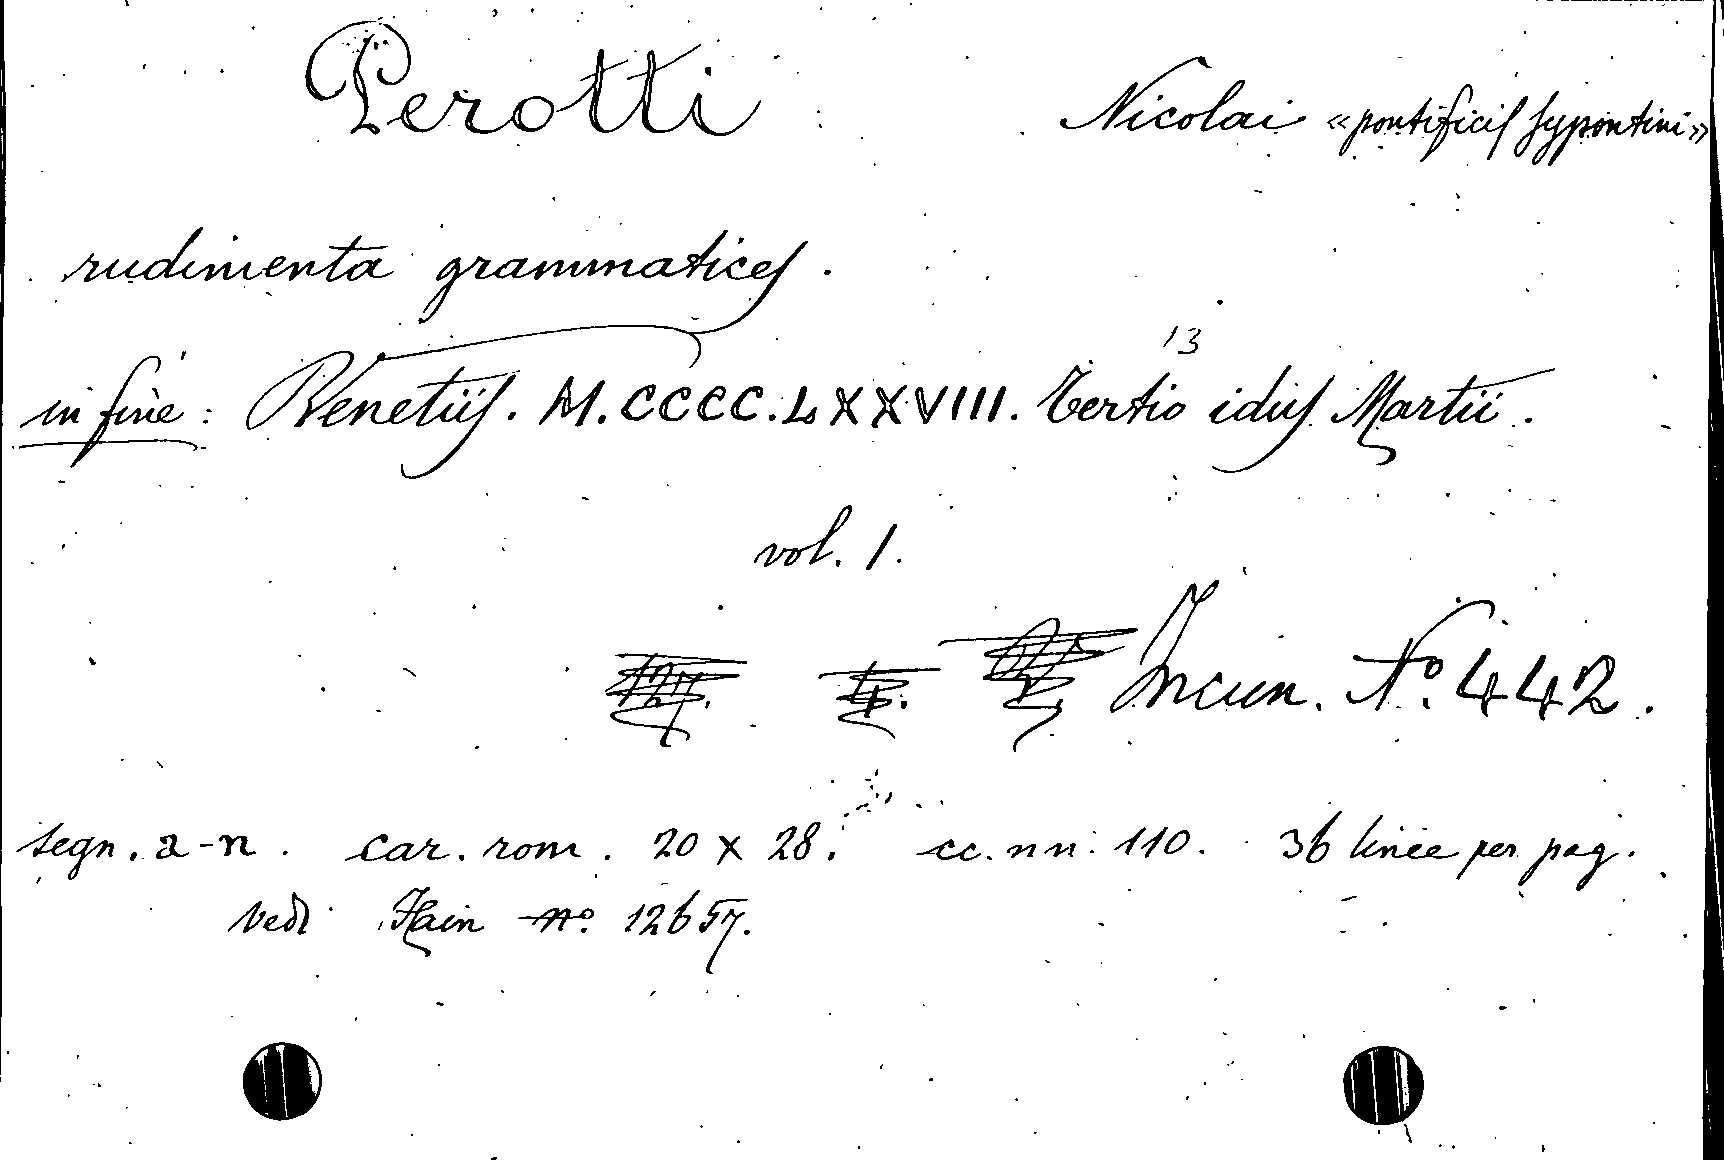 Perotti Nicolai «pontificis sypontini»
rudimenta grammatices.
13
in fine: Venetiis. M.CCCC.LXXVIII. Tertio idus Martii.
vol. 1.
Incun. No. 442.
segn. a-n. car. rom. 20 x 28. cc. nn. 110. 36 linee per pag.
vedi Hain no. 12657.